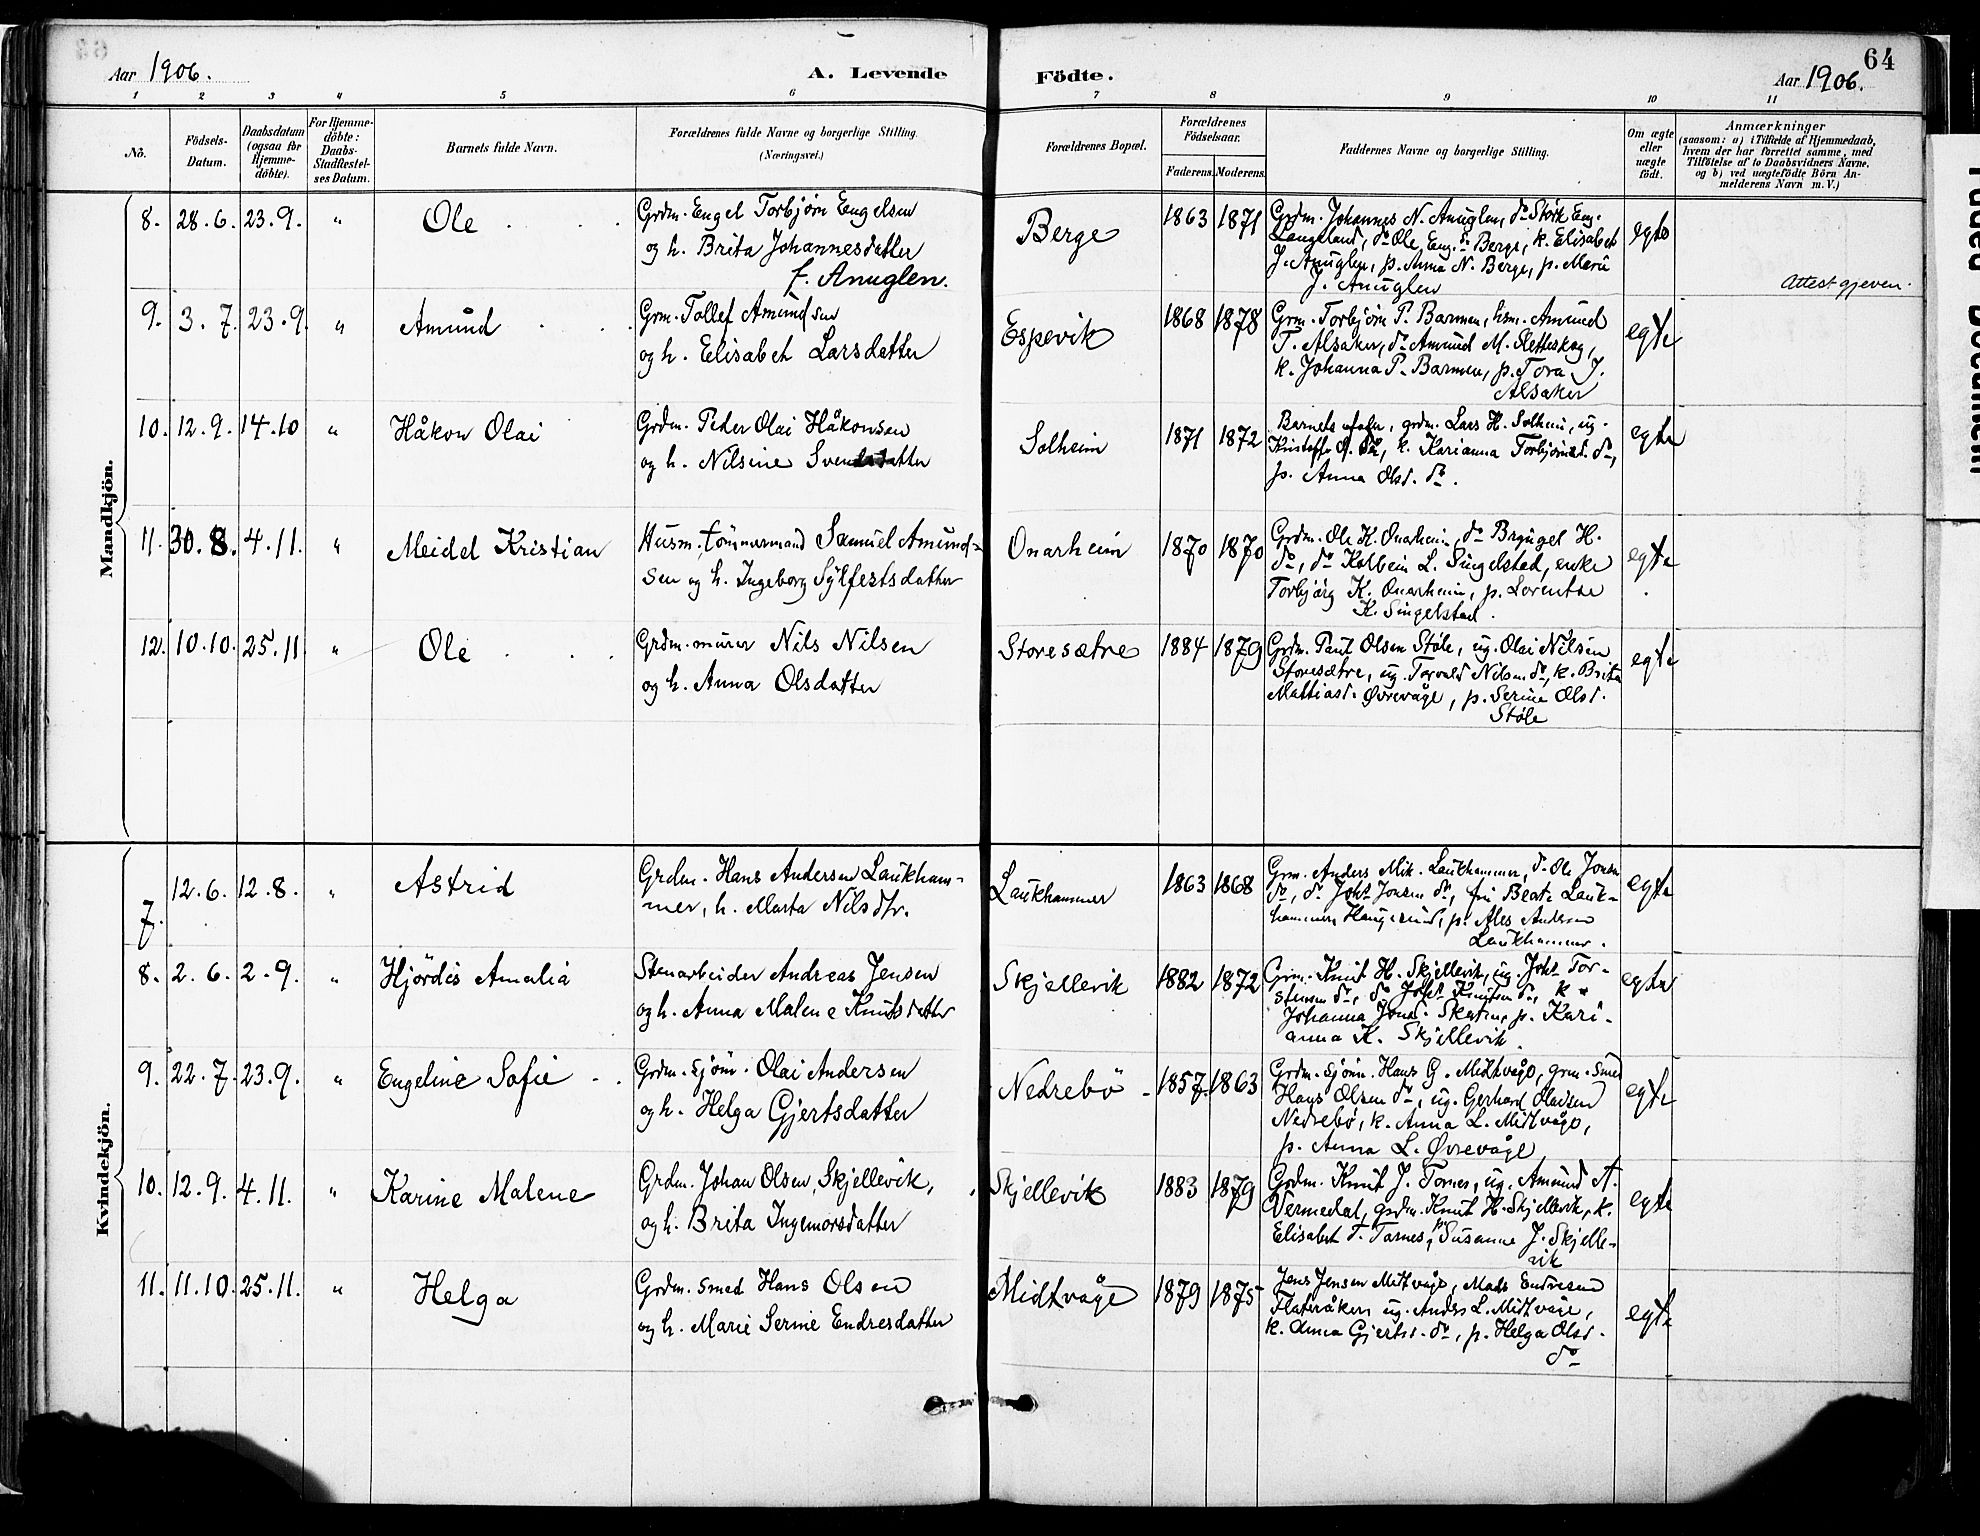 64
Aar 1906.
A. Levende
Födte.
Aar 1906.
1 2 3 4 5 6 7 8 9 10 11
No.
Födsels-
Datum.
Daabsdatum
(ogsaa for
Hjemme-
döbte).
For Hjemme-
döbte:
Daabs-
Stadfæstel-
ses Datum.
Barnets fulde Navn.
Forældrenes fulde Navne og borgerlige Stilling.
(Næringsvei.)
Forældrenes Bopæl.
Forældrenes
Födselsaar.
Faderens. Moderens.
Faddernes Navne og borgerlige Stilling.
Om ægte
eller
uægte
födt.
Anmærkninger
(saasom: a) i Tilfælde af Hjemmedaab,
hvem der har forrettet samme, med
Tilföielse af to Daabsvidners Navne.
og b) ved uægtefödte Börn An-
melderens Navn m. V.)
Mandkjön.
8. 28.6. 23.9. " Ole
Grdm. Engel Torbjörn Engelsen
og h. Brita Johannesdatter
f. Anuglen.
Berge 1863 1871
Grdm. Johannes N. Anuglen, do Störk Eng.
Langeland, do Ole Eng. do Berge, k. Elisabet
J. Anuglen, p. Anna N. Berge, p. Marie
J. Anuglen
egte
Attest gjeven.
9. 3.7. 23.9. " Amund
Grm. Tollef Amundsen
og h. Elisabet Larsdatter
Espevik 1868 1878
Grm. Torbjörn P. Barmen, hsm. Amund
T. Alsaker, do Amund M. Sletteskog,
k. Johanna P. Barmen, p. Tora J.
Alsaker
egte
10. 12.9. 14.10 " Håkon Olai
Grdm. Peder Olai Håkonsen
og h. Nilsine Svendsdatter
Solheim 1871 1872
Barnets fader, grdm. Lars H. Solheim, ug.
k. Karianna Torbjörnsd. do,
p. Anna Olsd. do.
egte
11. 30.8. 4.11. " Meidel Kristian
Husm. tömmermand Samuel Amund-
sen og h. Ingeborg Sylfestsdatter
Onarheim 1870 1870
Grdm. Ole K. Onarheim, do Brynjel H.
do, do Kolbein L. Singelstad, enke
Torbjörg K. Onarheim, p. Lorentse
K. Singelstad.
egte
12. 10.10. 25.11 " Ole
Grdm. murer Nils Nilsen
og h. Anna Olsdatter
Storesætre 1884 1879
Grdm. Paul Olsen Støle, ug. Olai Nilsen
Storesætre, ug. Torvald Nilsen do, k. Brita
Mattiasd. Øvrevåge, p. Serine Olsd.
Støle
egte
Kvindekjön.
7. 12.6. 12.8. " Astrid
Grdm. Hans Andersen Laukham-
mer, h. Marta Nilsdtr.
Laukhammer 1863 1868
Grm. Anders Mik. Laukhammer, do Ole Jonsen
do, do Johs Jonsen do, fru Beate Lauk-
hammer Haugesund, p. Ales Anders
Laukhammer.
egte
8. 2.6. 2.9. " Hjördis Amalia
Stenarbeider Andreas Jensen
og h. Anna Malene Knutsdatter
Skjellevik 1882 1872
Grm. Knut H. Skjellevik, ug. Johs Tor-
stensen do, do Josef Knutsen do, k
Johanna Jonsd. Skaten, p. Kari-
anna K. Skjellevik.
egte
9. 22.7. 23.9. " Engeline Sofie
Grdm. sjöm. Olai Andersen
og h. Helga Gjertsdatter
Nedrebö 1857 1863
Grdm. sjöm. Hans G. Midtvåge, grm. smed
Hans Olsen do, ug. Gerhard Olavsen
Nedrebö, k. Anna L. Midtvåge,
p. Anna L. Øvrevåge
egte
10. 12.9. 4.11. " Karine Malene
Grdm. Johan Olsen, Skjellevik,
og h. Brita Ingemorsdatter
Skjellevik 1883 1879
Grdm. Knut J. Tornes, ug. Amund A.
Vermedal, grdm. Knut H. Skjellevik, k.
Elisabet T. Tarnes, p. Susanne J. Skjelle-
vik
egte
11. 11.10 25.11. " Helga
Grdm. smed Hans Olsen
og h. Marie Serine Endresdatter
Midtvåge 1879 1875
Jens Jensen Midtvåge, Mads Endresen
Flateråker, ug. Anders L. Midtvåge,
k. Anna Gjertsd. do, p. Helga Olsd.
do
egte